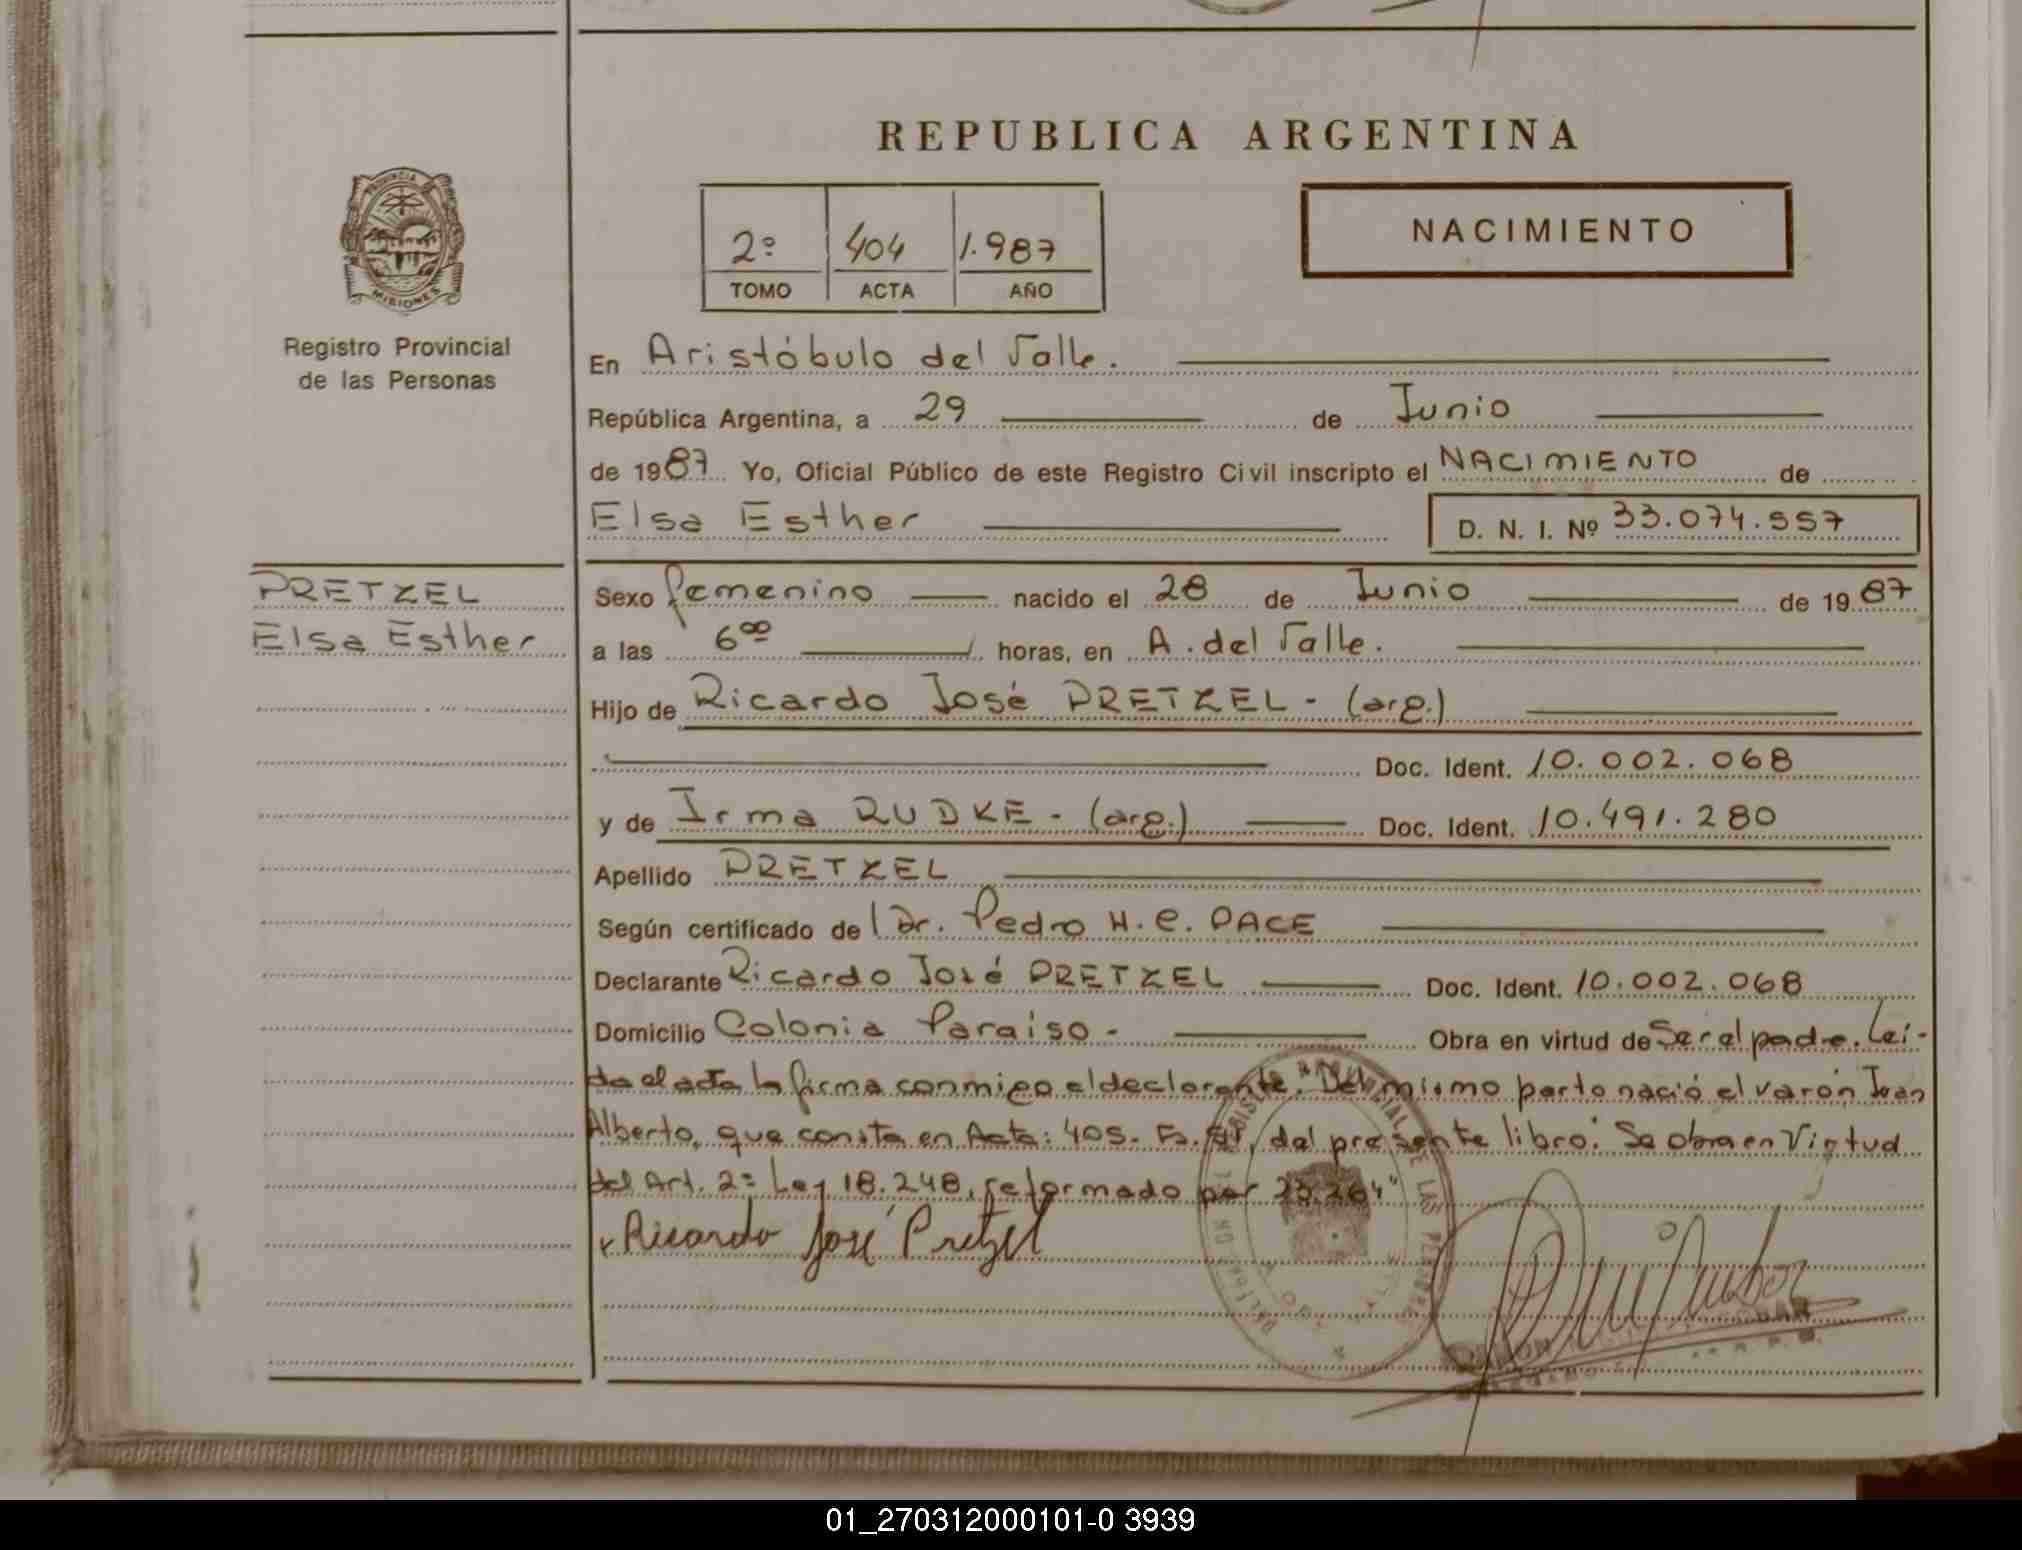 REPUBLICA ARGENTINA
PROVINCIA
MISIONES
Registro Provincial
de las Personas
2º 404 1.987
TOMO ACTA AÑO
NACIMIENTO
En Aristóbulo del Valle.
República Argentina, a 29 de Junio
de 1987 Yo, Oficial Público de este Registro Civil inscripto el NACIMIENTO de
Elsa Esther D. N. I. Nº 33.074.557
PRETZEL
Elsa Esther
Sexo femenino nacido el 28 de Junio de 1987
a las 6⁰⁰ horas, en A. del Valle.
Hijo de Ricardo José PRETZEL - (arg.)
Doc. Ident. 10.002.068
y de Irma RUDKE - (arg.) Doc. Ident. 10.491.280
Apellido PRETZEL
Según certificado de Dr. Pedro H. C. PACE
Declarante Ricardo José PRETZEL Doc. Ident. 10.002.068
Domicilio Colonia Paraiso - Obra en virtud de Ser el padre. Leí-
da el acta la firma conmigo el declarante. Del mismo parto nació el varón Juan
Alberto, que consta en Acta: 405- Fs. del presente libro. Se obra en Virtud
del Art. 2º Ley 18.248, reformado por 23.264"
Ricardo José Pretzel
01_270312000101-0 3939